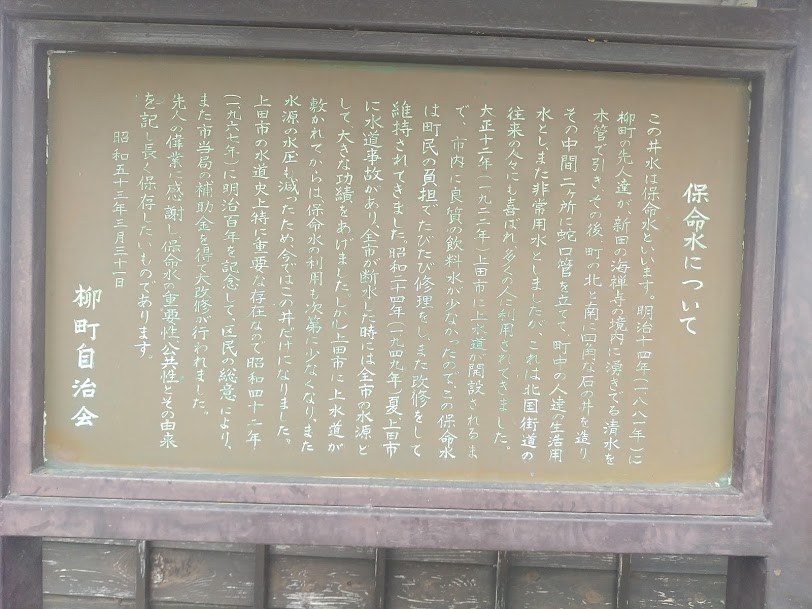 保命水について
この井水は保命水といいます。明治十四年(一八八一年)に
柳町の先人達が、新田の海禅寺の境内に湧きでる清水を
木管で引き、その後、町の北と南に四角な石の井を造り
その中間二ヶ所に蛇口管を立てて、町中の人達の生活用
水とし、また非常用水としましたが、これは北国街道の
往来の人々にも喜ばれ、多くの人に利用されてきました。
大正十二年(一九二三年)上田市に上水道が開設されるま
で、市内に良質の飲料水が少なかったので、この保命水
は町民の負担でたびたび修理をし、また改修をして
維持されてきました。昭和二十四年(一九四九年)夏、上田市
に水道事故があり、全市が断水した時には全市の水源と
して大きな功績をあげました。しかし上田市に上水道が
敷かれてからは保命水の利用も次第に少なくなり、また
水源の水圧も減ったため、今ではこの井だけになりました。
上田市の水道史上特に重要な存在なので昭和四十二年
(一九六七年)に明治百年を記念して、区民の総意により、
また市当局の補助金を得て大改修が行われました。
先人の偉業に感謝し保命水の重要性(公共性)とその由来
を記し長く保存したいものであります。
昭和五十三年三月三十一日
柳町自治会